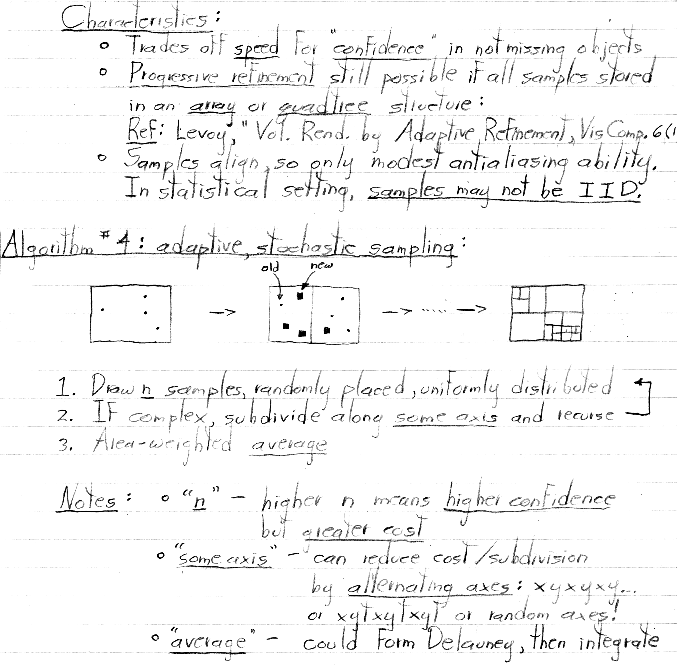 Characteristics:
o Trades off speed for "confidence" in not missing objects
o Progressive refinement still possible if all samples stored
in an array or quadtree structure:
Ref: Levoy, "Vol. Rend. by Adaptive Refinement, Vis Comp. 6(1
o Samples align, so only modest antialiasing ability.
In statistical setting, samples may not be IID.
Algorithm #4: adaptive, stochastic sampling:
old new
1. Draw n samples, randomly placed, uniformly distributed
2. If complex, subdivide along some axis and recurse
3. Area-weighted average
Notes: o "n" - higher n means higher confidence
but greater cost
o "some axis" - can reduce cost/subdivision
by alternating axes: xyxyxy...
or xytxytxyt or random axes!
o "average" - could form Delauney, then integrate